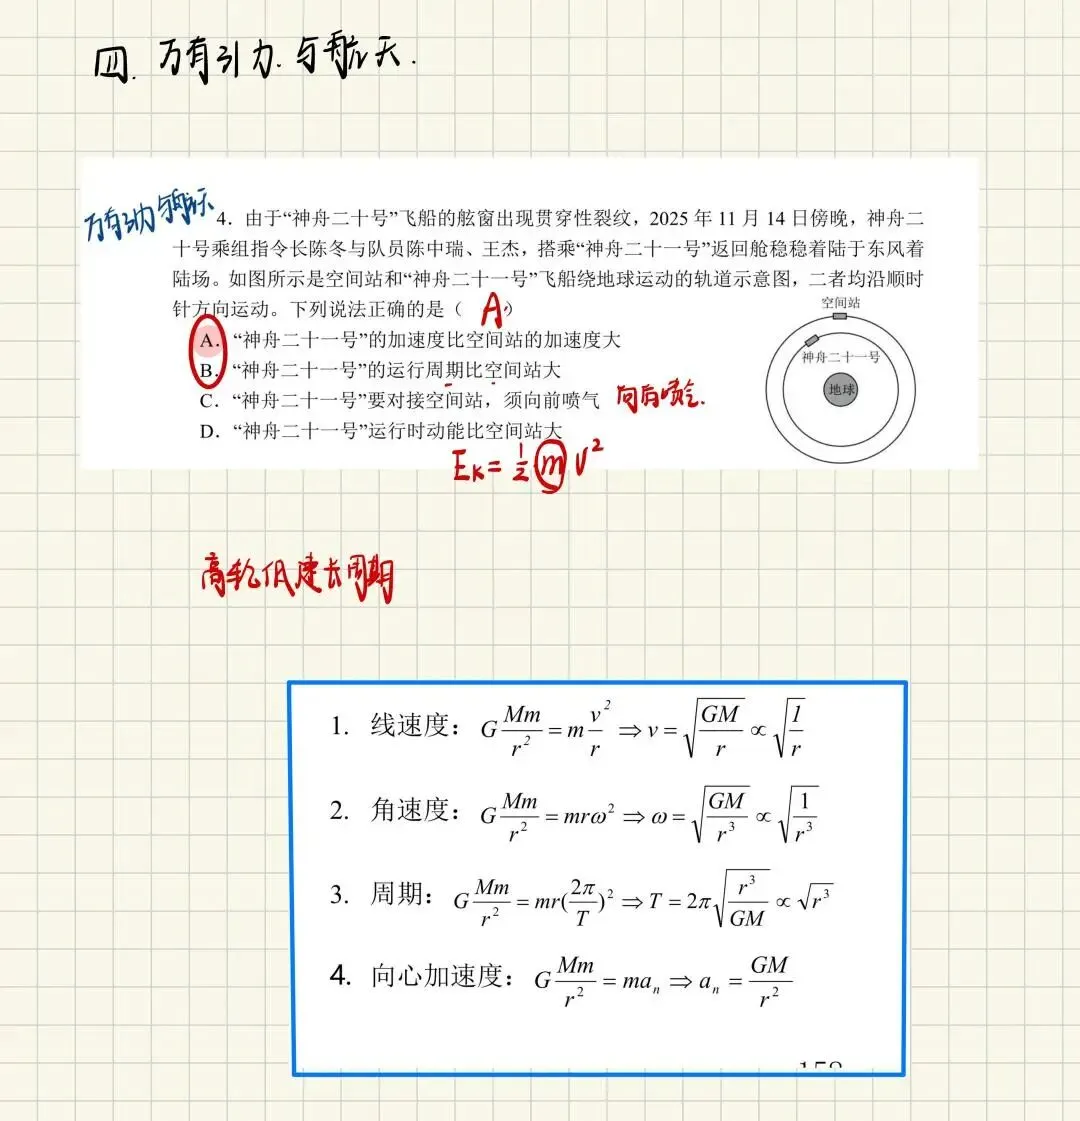 四. 万有引力与航天.
万有引力与航天
4. 由于“神舟二十号”飞船的舷窗出现贯穿性裂纹，2025 年 11 月 14 日傍晚，神舟二
十号乘组指令长陈冬与队员陈中瑞、王杰，搭乘“神舟二十一号”返回舱稳稳着陆于东风着
陆场。如图所示是空间站和“神舟二十一号”飞船绕地球运动的轨道示意图，二者均沿顺时
针方向运动。下列说法正确的是（ A ）
A. “神舟二十一号”的加速度比空间站的加速度大
B. “神舟二十一号”的运行周期比空间站大
C. “神舟二十一号”要对接空间站，须向前喷气 向后喷气.
D. “神舟二十一号”运行时动能比空间站大
E_K = 1/2 m v²
空间站
神舟二十一号
地球
高轨低速长周期
1. 线速度： G Mm/r² = m v²/r ⇒ v = √(GM/r) ∝ √(1/r)
2. 角速度： G Mm/r² = mrω² ⇒ ω = √(GM/r³) ∝ √(1/r³)
3. 周期： G Mm/r² = mr(2π/T)² ⇒ T = 2π√(r³/GM) ∝ √r³
4. 向心加速度： G Mm/r² = maₙ ⇒ aₙ = GM/r²